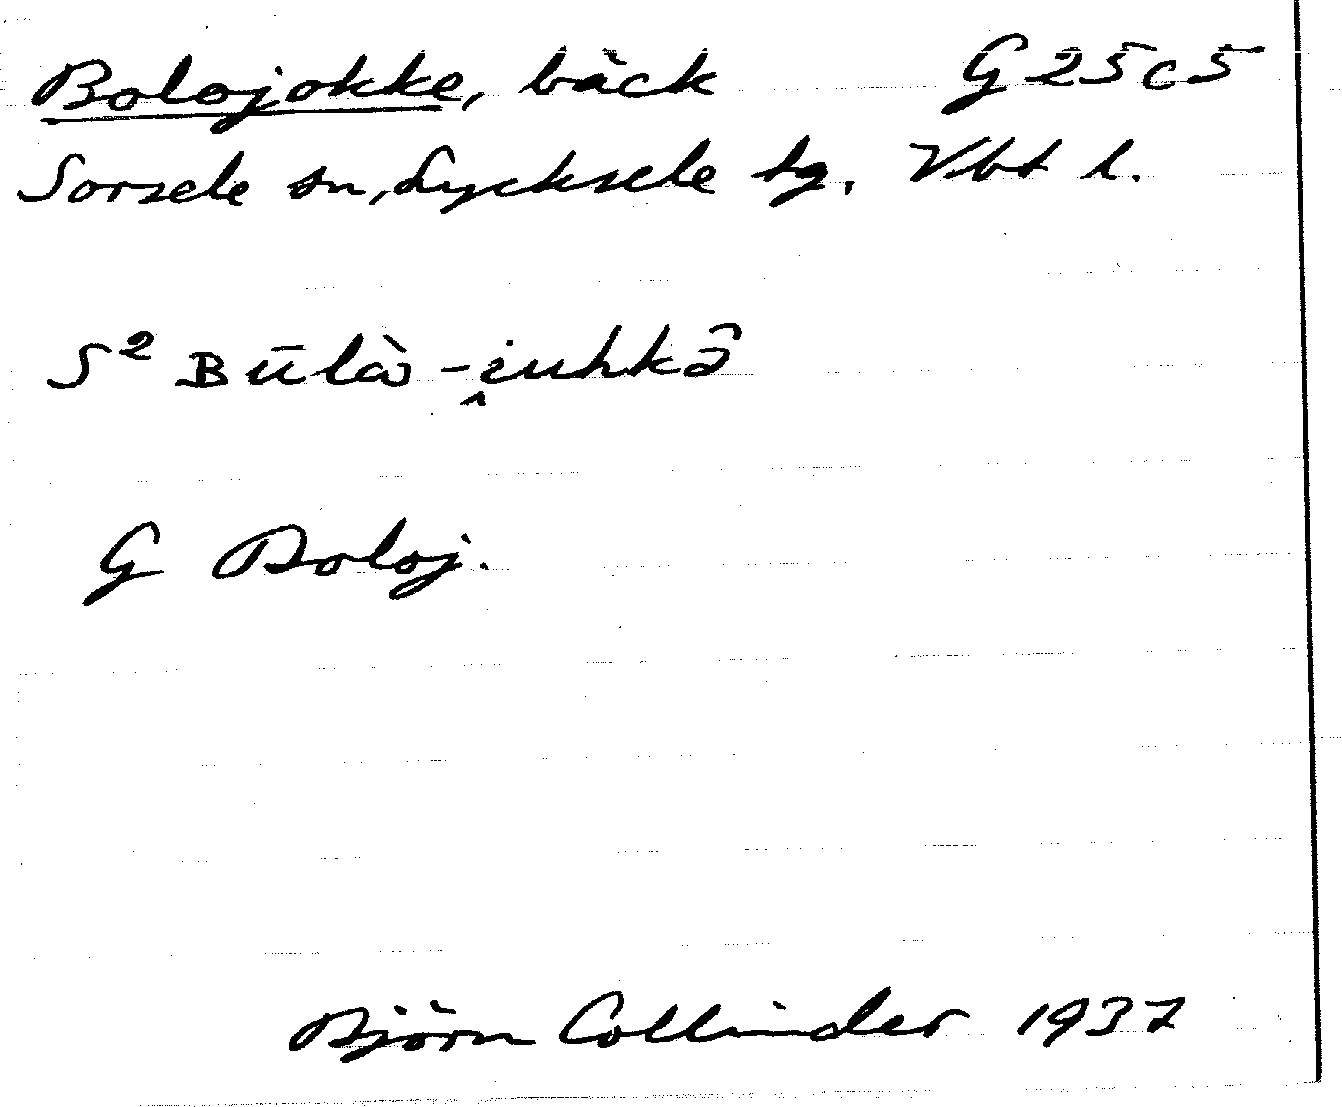 Bolojokke, bäck G 25 c 5
Sorsele sn, Lycksele tg, Vbt l.
S² Būlà-i̭uhkâ
G Boloj.
Björn Collinder 1937